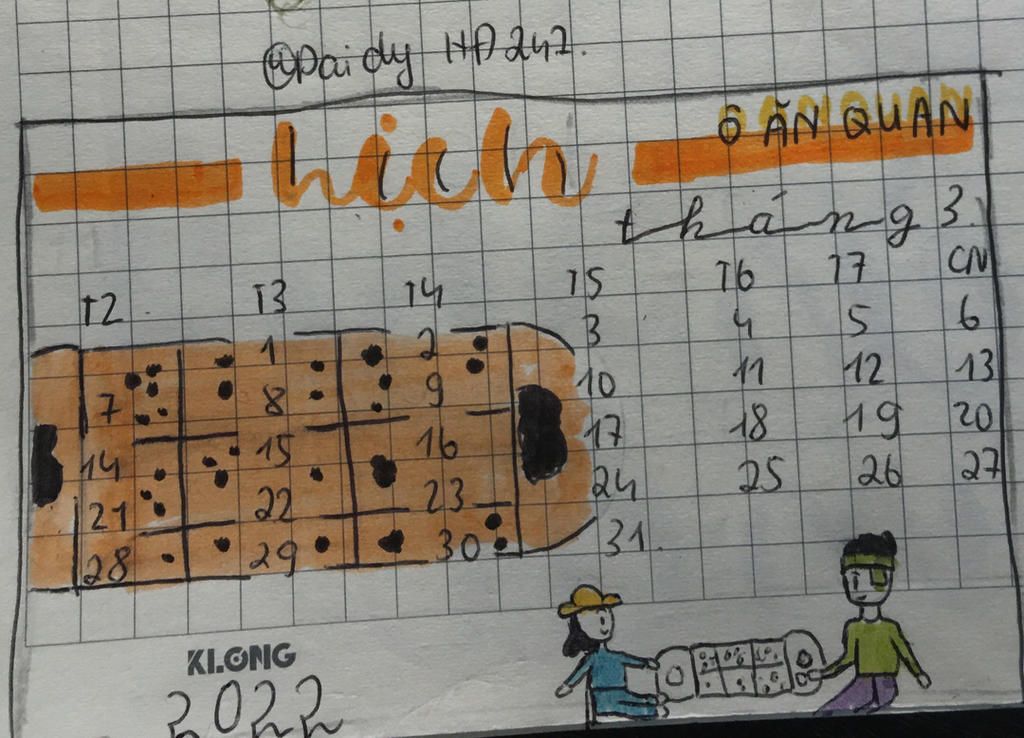 @Daidy HĐ247.
lịch
Ô ĂN QUAN
tháng 3.
T2 T3 T4 T5 T6 T7 CN
1 2 3 4 5 6
7 8 9 10 11 12 13
14 15 16 17 18 19 20
21 22 23 24 25 26 27
28 29 30 31.
KLONG
2022